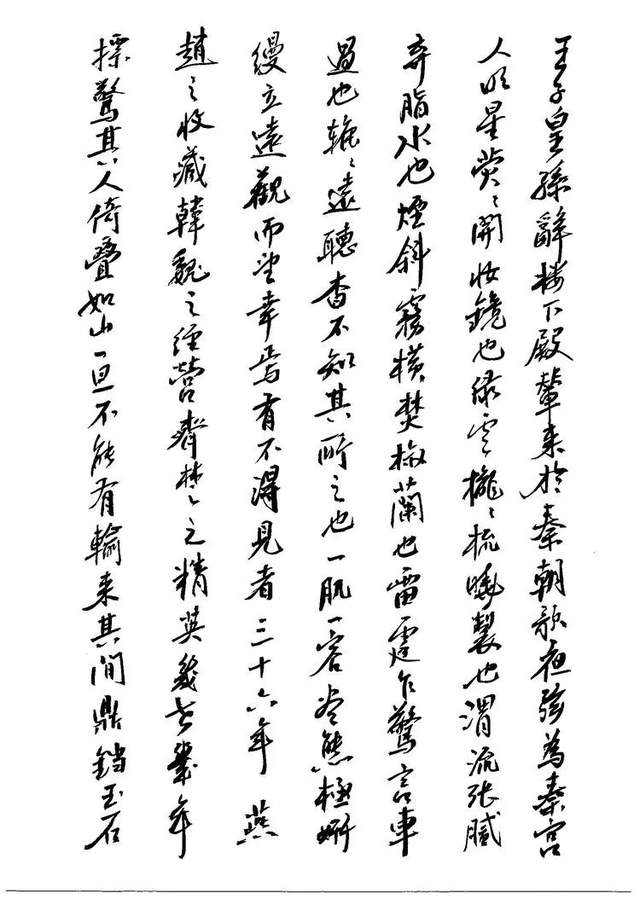 王子皇孫辭楼下殿輦来於秦朝歌夜弦為秦宫
人明星荧々開妆鏡也绿雲擾々梳晓鬟也渭流张腻
弃脂水也煙斜霧横焚椒蘭也雷霆乍驚宫車
過也轆々遠聽杳不知其所之也一肌一容尽態極妍
縵立遠觀而望幸焉有不得見者三十六年 燕
趙之收藏韓魏之經營齊楚之精英幾世幾年
摽驚其人倚疊如山一旦不能有輸来其間鼎铛玉石